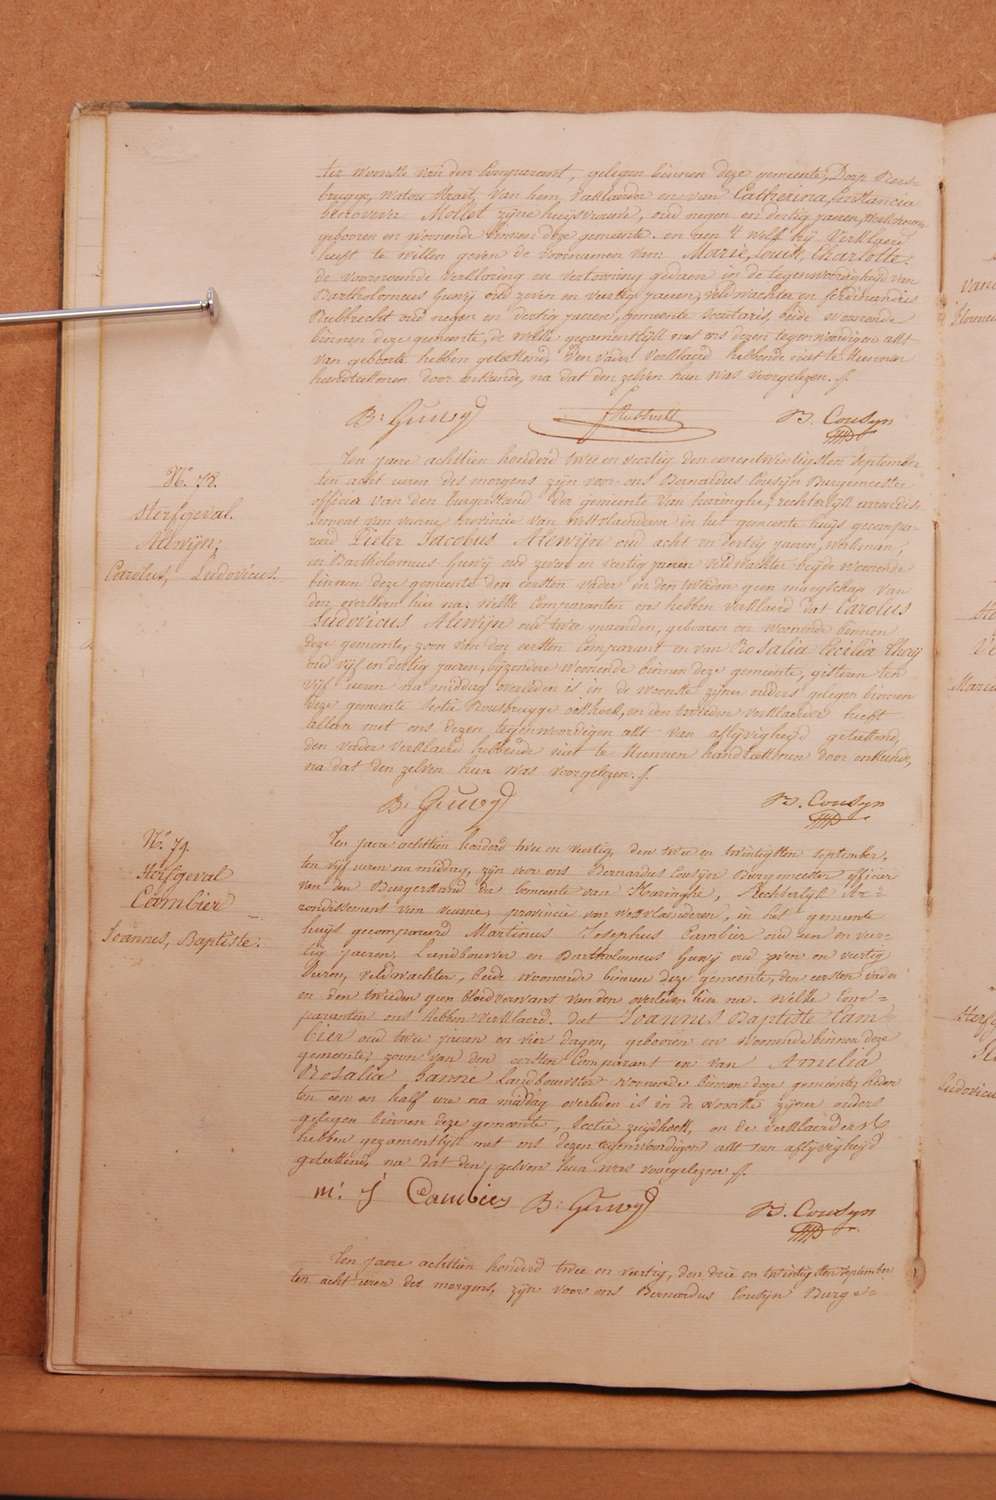 ter woonste van den Comparant, gelegen binnen deze gemeente, Dorp Rous-
brugge, Watou straet, van hem, verklaerder en van Catherina, Constancia
Genoveva Mollet zijne huijsvrouwe, oud negen en dertig jaeren,
gebooren en woonende binnen deze gemeente. en aen t'welk hij verklaerd
heeft te willen geven de voornaemen van Marie, Louise, Charlotte.
de voornoemde verklaring en vertooning gedaen in de tegenwoordigheijd van
Bartholomeus Guwij oud zeven en veertig jaeren, veldwachter en ferdinandus
Rubbrecht oud negen en dertig jaeren, gemeente secretaris, beide woonende
binnen deze gemeente, de welke gezamentlijk met ons dezen tegenwoordigen akt
van geboorte hebben geteekend, den vader verklaerd hebbende niet te kunnen
handteekenen door onkunde, na dat den zelven hun was voorgelezen. /.
B: Guwy fRubbrecht B. Cousyn
N.° 78.
sterfgeval.
Alewijn;
Carolus, Ludovicus.
Ten jaere achttien honderd twee en veertig den eenentwintigsten september
ten acht uren des morgens zijn voor ons Bernardus Cousijn Burgemeester
officier van den burgerstand der gemeente van haringhe, rechterlijk arrondis-
sement van veurne provincie van westvlaenderen in het gemeente huijs gecompa-
reerd Pieter Jacobus Alewijn oud acht en dertig jaeren, werkman,
en Bartholomeus Guwij oud zeven en veertig jaeren veldwachter beijde woonende
binnen deze gemeente den eersten vader en den tweeden geen maegschap van
den overleden hier na. Welke Comparanten ons hebben verklaerd dat Carolus
Ludovicus Alewijn oud twee maenden, gebooren en woonende binnen
deze gemeente, zoon van den eersten Comparant en van Rosalia Cecilia
oud vijf en dertig jaeren, bijzondere woonende binnen deze gemeente, gisteren ten
vijf uren na middag overleden is in de woonste zijner ouders gelegen binnen
deze gemeente sectie Rousbrugge oosthoek, en den tweeden verklaerder heeft
alleen met ons dezen tegenwoordigen akt van aflijvigheijd geteekend,
den vader verklaerd hebbende niet te kunnen handteekenen door onkunde,
na dat den zelven hun was voorgelezen. /.
B: Guwy B. Cousyn
N.° 79.
Sterfgeval
Cambier
Joannes, Baptiste.
Ten jaere achttien honderd twee en veertig, den twee en twintigsten september,
ten vijf uren na middag, zijn voor ons Bernardus Cousijn Burgemeester officier
van den Burgerstand der Gemeente van Haringhe, Rechterlijk Ar-
rondissement van veurne, provincie van westvlaenderen, in het gemeente
huijs gecompareerd Martinus Josephus Cambier oud een en veer-
tig jaeren, Landbouwer en Bartholomeus Guwij oud zeven en veertig
Jaeren, veldwachter, beide woonende binnen deze gemeente, den eersten vader
en den tweeden geen bloedverwant van den overleden hier na. Welke Com-
paranten ons hebben verklaerd. dat Joannes Baptiste Cam-
bier oud twee jaeren en vier dagen, gebooren en woonende binnen deze
gemeente, zoon van den eersten Comparant en van Amelia
Rosalia Janne Landbouwster woonende binnen deze gemeente, heden
ten een en half ure na middag overleden is in de woonste zijner ouders
gelegen binnen deze gemeente, sectie zuijdhoek, en de verklaerders
hebben gezamentlijk met ons dezen tegenwoordigen akt van aflijvigheijd
geteekend, na dat den zelven hun was voorgelezen /.
m: J Cambier B: Guwy B. Cousyn
Ten jaere achttien honderd twee en veertig, den drie en twintigsten september
ten acht uren des morgens, zijn voor ons Bernardus Cousijn Burge-